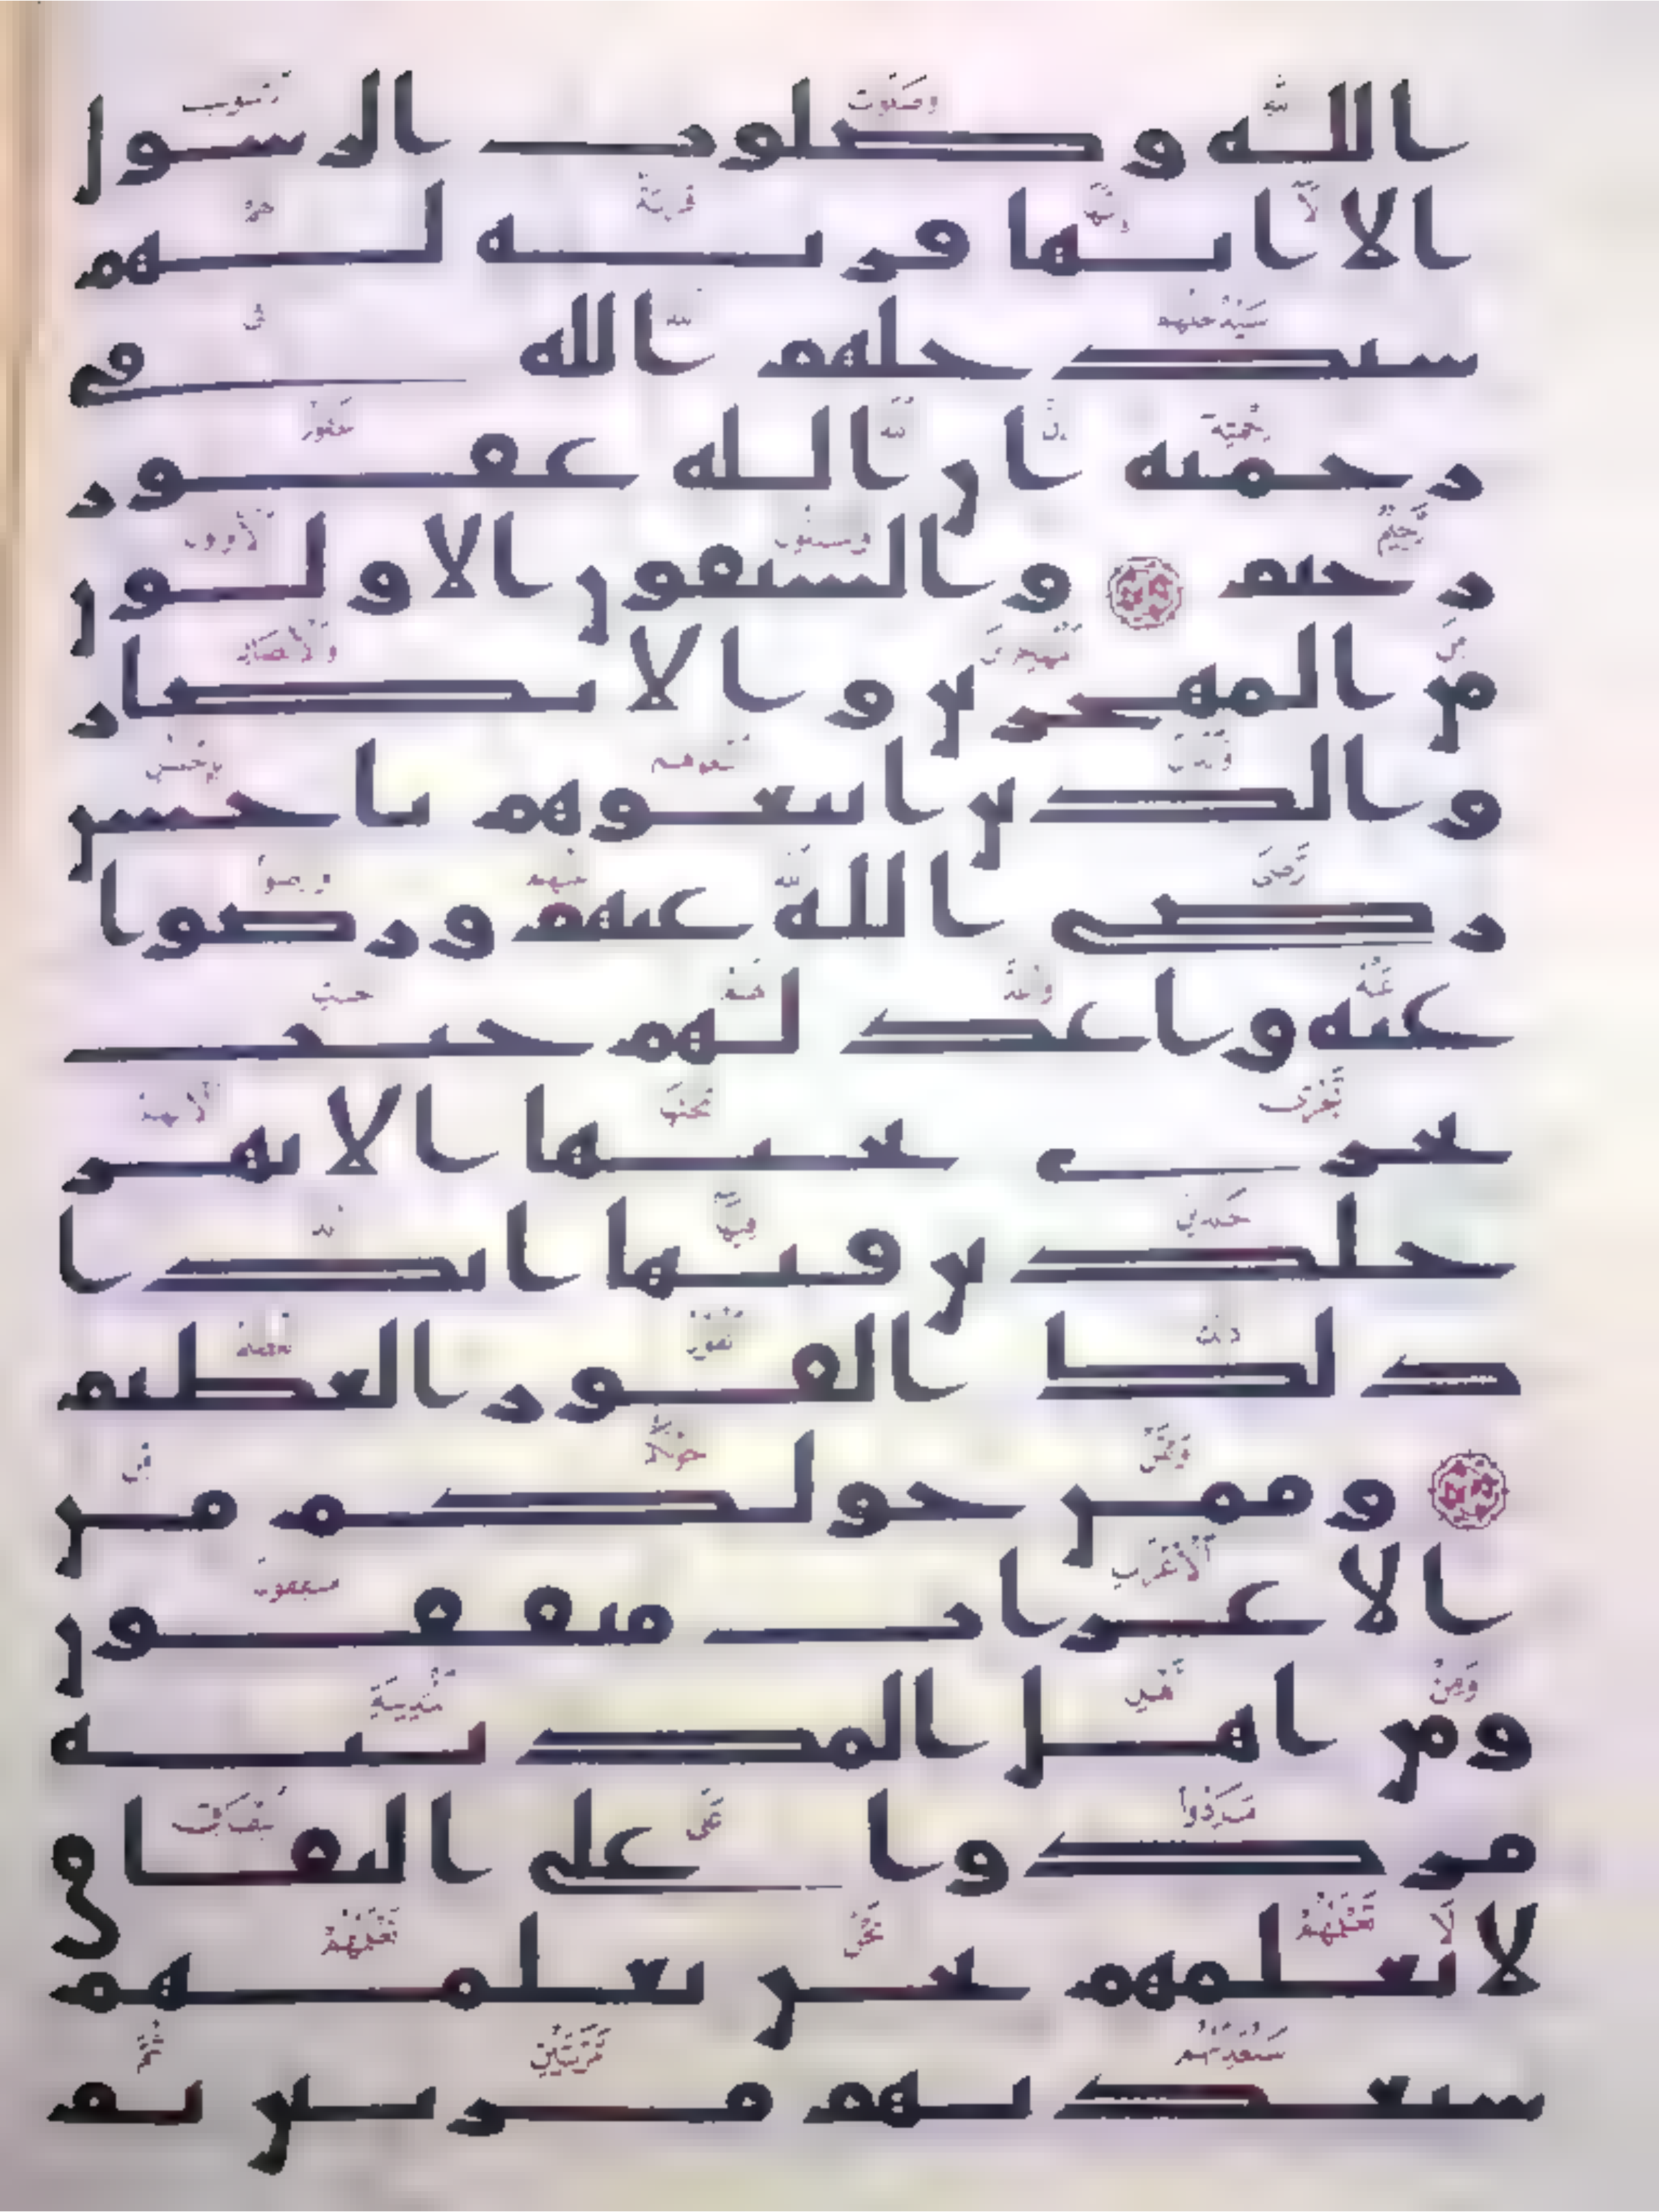 الله وصلوت الرسول
الا انها قربة لهم
سيدخلهم الله في
رحمته ان الله غفور
رحيم والسبقون الاولون
من المهجرين والانصار
والذين اتبعوهم باحسن
رضى الله عنهم ورضوا
عنه واعد لهم جنت
تجرى تحتها الانهر
خلدين فيها ابدا
ذلك الفوز العظيم
وممن حولكم من
الاعراب منفقون
ومن اهل المدينة
مردوا على النفاق
لا تعلمهم نحن نعلمهم
سنعذبهم مرتين ثم